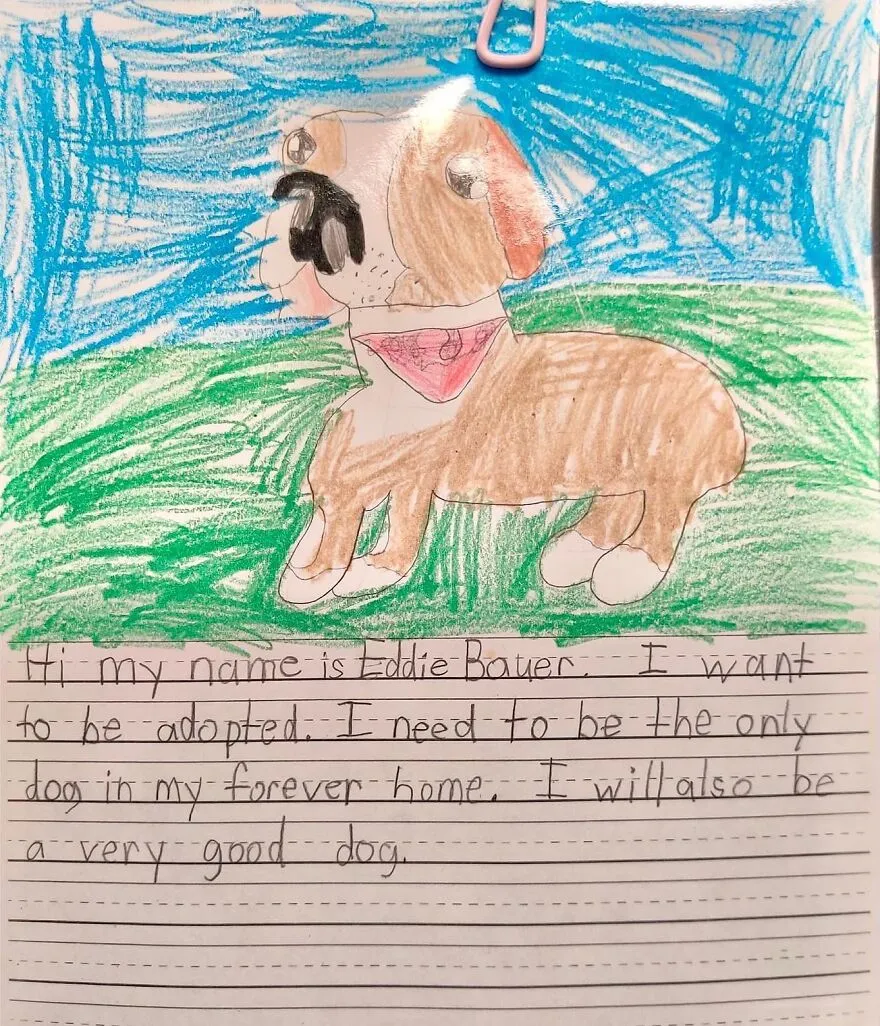 Hi my name is Eddie Bauer. I want
to be adopted. I need to be the only
dog in my forever home. I will also be
a very good dog.